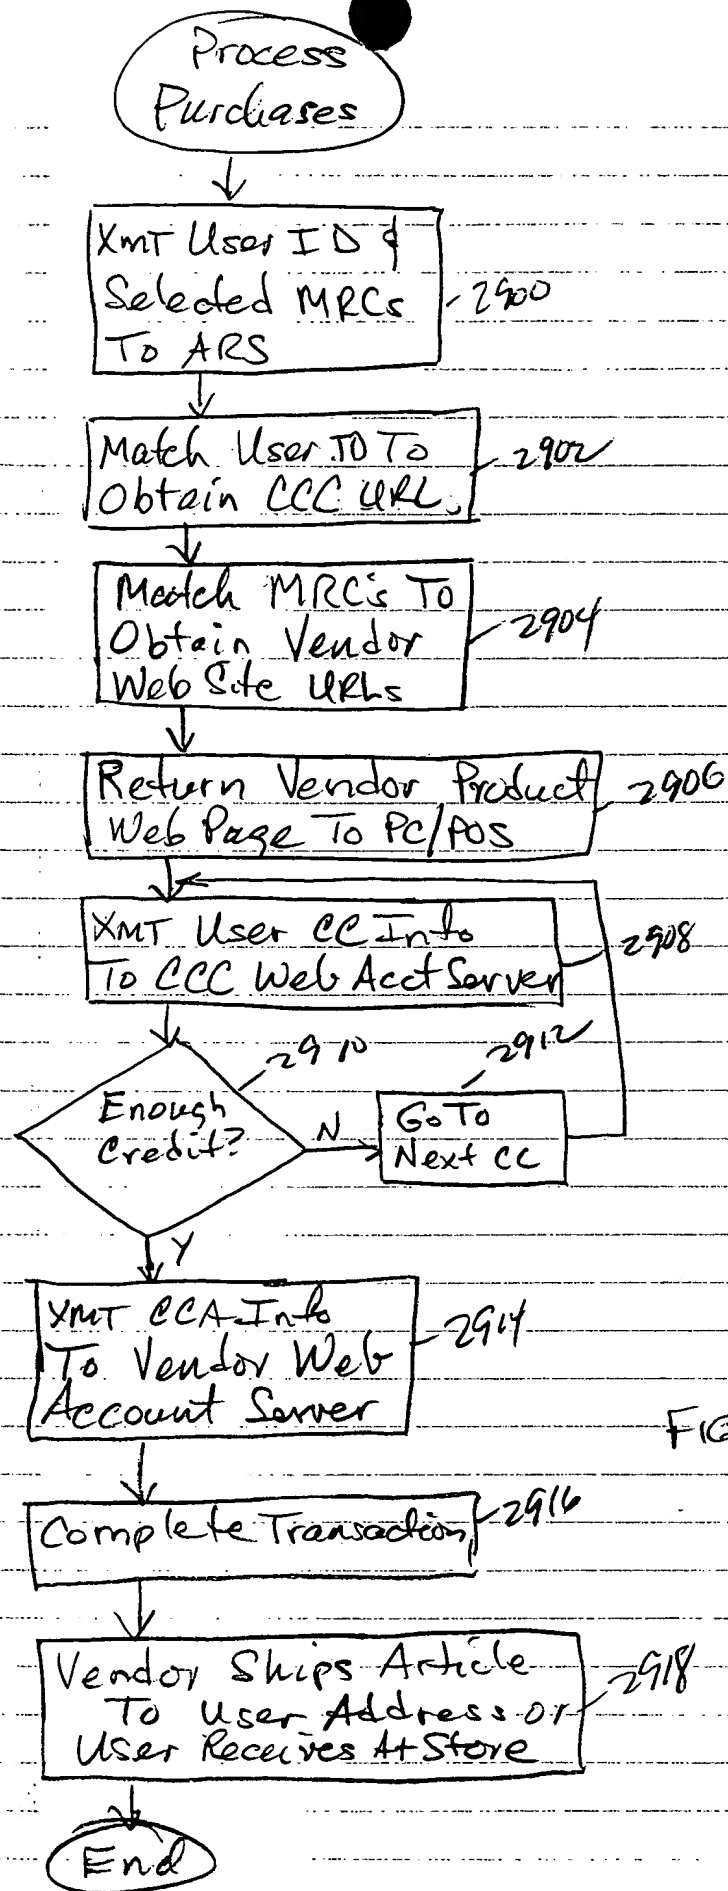 Process
Purchases
XMT User ID &
Selected MRCs
To ARS
2900
Match User ID To
Obtain CCC URL.
2902
Match MRC's To
Obtain Vendor
Web Site URLs
2904
Return Vendor Product
Web Page To PC/POS
2906
XMT User CC Info
To CCC Web Acct Server
2908
2910
2912
Enough
Credit?
N
Go To
Next CC
Y
XMT CCA Info
To Vendor Web
Account Server
2914
FIG
Complete Transaction
2916
Vendor Ships Article
To User Address or
User Receives At Store
2918
End